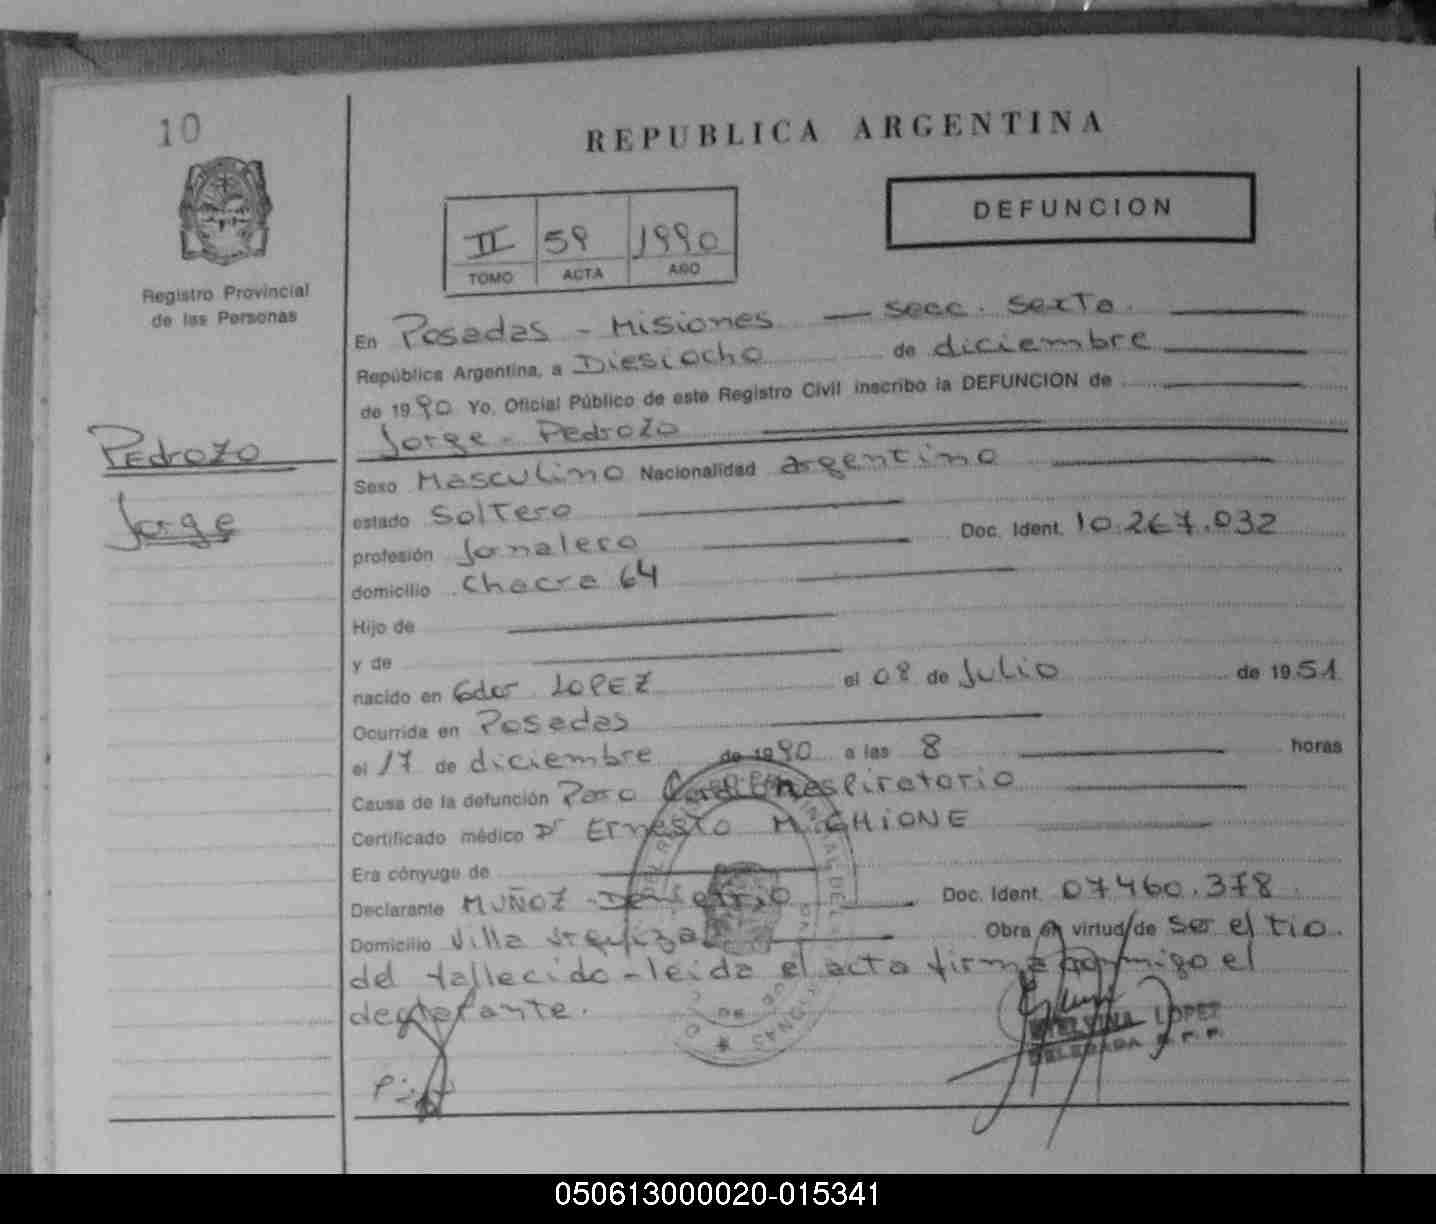 10
REPUBLICA ARGENTINA
DEFUNCION
II 59 1990
TOMO ACTA AÑO
Registro Provincial
de las Personas
En Posadas - Misiones - secc. sexta.
República Argentina, a Diesiocho de diciembre
de 1990 Yo, Oficial Público de este Registro Civil inscribo la DEFUNCION de
Jorge - Pedrozo
Pedrozo
Jorge
Sexo Masculino Nacionalidad argentino
estado Soltero
profesión Jornalero Doc. Ident. 10.267.032
domicilio Chacra 64
Hijo de
y de
nacido en Gdor LOPEZ el 08 de Julio de 1951
Ocurrida en Posadas
el 17 de diciembre de 1990 a las 8 horas
Causa de la defunción Paro respiratorio
Certificado médico Dr ERNESTO MIGHIONE
Era cónyuge de
Declarante MUÑOZ - Demetrio Doc. Ident. 07460.378
Domicilio Villa Urquiza Obra en virtud de ser el tio.
del fallecido - leida el acta firma conmigo el
declarante.
ETELVINA LOPEZ
DELEGADA
050613000020-015341